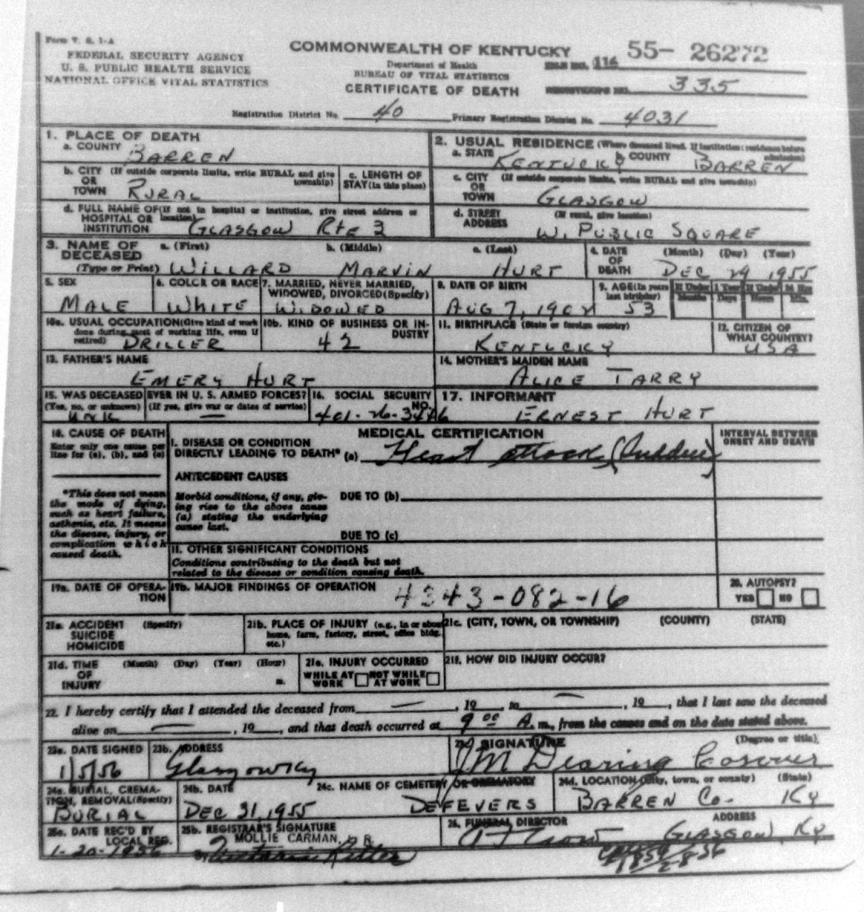 Form V. S. 1-A
FEDERAL SECURITY AGENCY
U. S. PUBLIC HEALTH SERVICE
NATIONAL OFFICE VITAL STATISTICS
COMMONWEALTH OF KENTUCKY
Department of Health
BUREAU OF VITAL STATISTICS
CERTIFICATE OF DEATH
FILE NO. 116 55- 26272
REGISTRAR'S NO. 335
Registration District No. 40 Primary Registration District No. 4031
1. PLACE OF DEATH
a. COUNTY BARREN
2. USUAL RESIDENCE (Where deceased lived. If institution: residence before admission)
a. STATE KENTUCKY b. COUNTY BARREN
b. CITY OR TOWN (If outside corporate limits, write RURAL and give township) RURAL
c. LENGTH OF STAY (in this place)
c. CITY OR TOWN (If outside corporate limits, write RURAL and give township) GLASGOW
d. FULL NAME OF HOSPITAL OR INSTITUTION (If not in hospital or institution, give street address or location) GLASGOW Rte 3
d. STREET ADDRESS (If rural, give location) W. PUBLIC SQUARE
3. NAME OF DECEASED (Type or Print) a. (First) b. (Middle) c. (Last)
WILLARD MARVIN HURT
4. DATE OF DEATH (Month) (Day) (Year) DEC 29 1955
5. SEX MALE
6. COLOR OR RACE WHITE
7. MARRIED, NEVER MARRIED, WIDOWED, DIVORCED (Specify) WIDOWED
8. DATE OF BIRTH AUG 7, 190
9. AGE (In years last birthday) 53
If Under 1 Year Months Days
If Under 24 Hrs Hours Min.
10a. USUAL OCCUPATION (Give kind of work done during most of working life, even if retired) DRILLER
10b. KIND OF BUSINESS OR INDUSTRY 42
11. BIRTHPLACE (State or foreign country) KENTUCKY
12. CITIZEN OF WHAT COUNTRY? USA
13. FATHER'S NAME EMERY HURT
14. MOTHER'S MAIDEN NAME ALICE TARRY
15. WAS DECEASED EVER IN U. S. ARMED FORCES? (Yes, no, or unknown) (If yes, give war or dates of service) UNK —
16. SOCIAL SECURITY NO. 401-26-
17. INFORMANT ERNEST HURT
18. CAUSE OF DEATH
Enter only one cause per line for (a), (b), and (c)
*This does not mean the mode of dying, such as heart failure, asthenia, etc. It means the disease, injury, or complication which caused death.
MEDICAL CERTIFICATION
I. DISEASE OR CONDITION DIRECTLY LEADING TO DEATH* (a) Heart attack (Sudden)
INTERVAL BETWEEN ONSET AND DEATH
ANTECEDENT CAUSES
Morbid conditions, if any, giving rise to the above cause (a) stating the underlying cause last.
DUE TO (b)
DUE TO (c)
II. OTHER SIGNIFICANT CONDITIONS
Conditions contributing to the death but not related to the disease or condition causing death.
19a. DATE OF OPERATION
19b. MAJOR FINDINGS OF OPERATION 4343-082-16
20. AUTOPSY? YES NO
21a. ACCIDENT SUICIDE HOMICIDE (Specify)
21b. PLACE OF INJURY (e.g., in or about home, farm, factory, street, office bldg. etc.)
21c. (CITY, TOWN, OR TOWNSHIP) (COUNTY) (STATE)
21d. TIME OF INJURY (Month) (Day) (Year) (Hour) m.
21e. INJURY OCCURRED WHILE AT WORK NOT WHILE AT WORK
21f. HOW DID INJURY OCCUR?
22. I hereby certify that I attended the deceased from —, 19 to —, 19, that I last saw the deceased
alive on —, 19, and that death occurred at 9 00 A. m., from the causes and on the date stated above.
23a. DATE SIGNED 1/5/56
23b. ADDRESS Glasgow Ky
23c. SIGNATURE (Degree or title) J M Dearing Coroner
24a. BURIAL, CREMATION, REMOVAL (Specify) BURIAL
24b. DATE DEC 31, 1955
24c. NAME OF CEMETERY OR CREMATORY DEFEVERS
24d. LOCATION (City, town, or county) (State) BARREN CO. KY
25a. DATE REC'D BY LOCAL REG. 1-20-1956
25b. REGISTRAR'S SIGNATURE MOLLIE CARMAN, D R
26. FUNERAL DIRECTOR ADDRESS GLASGOW, KY